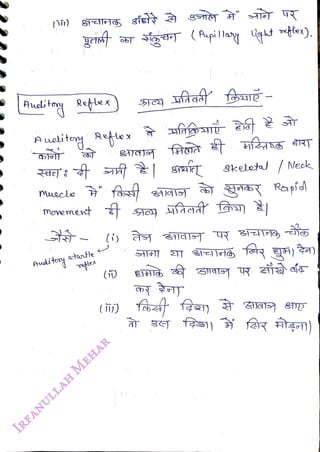 (iii) अचानक अंधेरे से उजाले में जाने पर
पुतली का संकुचन (Pupillary light reflex).
Auditory Reflex श्रव्य प्रतिवर्ती क्रियाएँ -
Auditory Reflex वे प्रतिक्रियाएँ होती है जो
कानों को आवाज मिलते ही मस्तिष्क द्वारा
स्वत: दी जाती है। अर्थात् Skeletal / Neck
Muscle में किसी आवाज को सुनकर Rapid
Movement ही श्रव्य प्रतिवर्ती क्रिया है।
जैसे - (i) तेज आवाज पर अचानक चौंक
जाना या अचानक सिर घुमा देना
Auditory startle reflex
(ii) धमाके की आवाज पर आँखे बंद
कर देना
(iii) किसी दिशा से आवाज आए
तो उस दिशा में सिर मोड़ना)
IRFANULLAH MEHAR